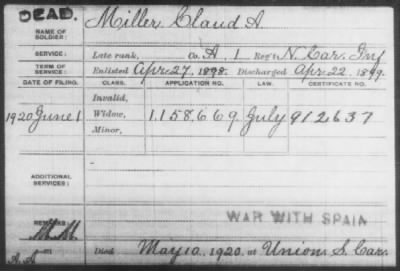 DEAD.
NAME OF SOLDIER: Miller, Claud A.
SERVICE: Late rank, Co. A, 1 Reg't N. Car. Inf
TERM OF SERVICE: Enlisted Apr. 27, 1898. Discharged Apr. 22, 1899.
DATE OF FILING. CLASS. APPLICATION NO. LAW. CERTIFICATE NO.
Invalid,
1920 June 1 Widow, 1158669 July 912637
Minor,
ADDITIONAL SERVICES:
WAR WITH SPAIN
REMARKS:
Died May 10, 1920, at Union S. Car.